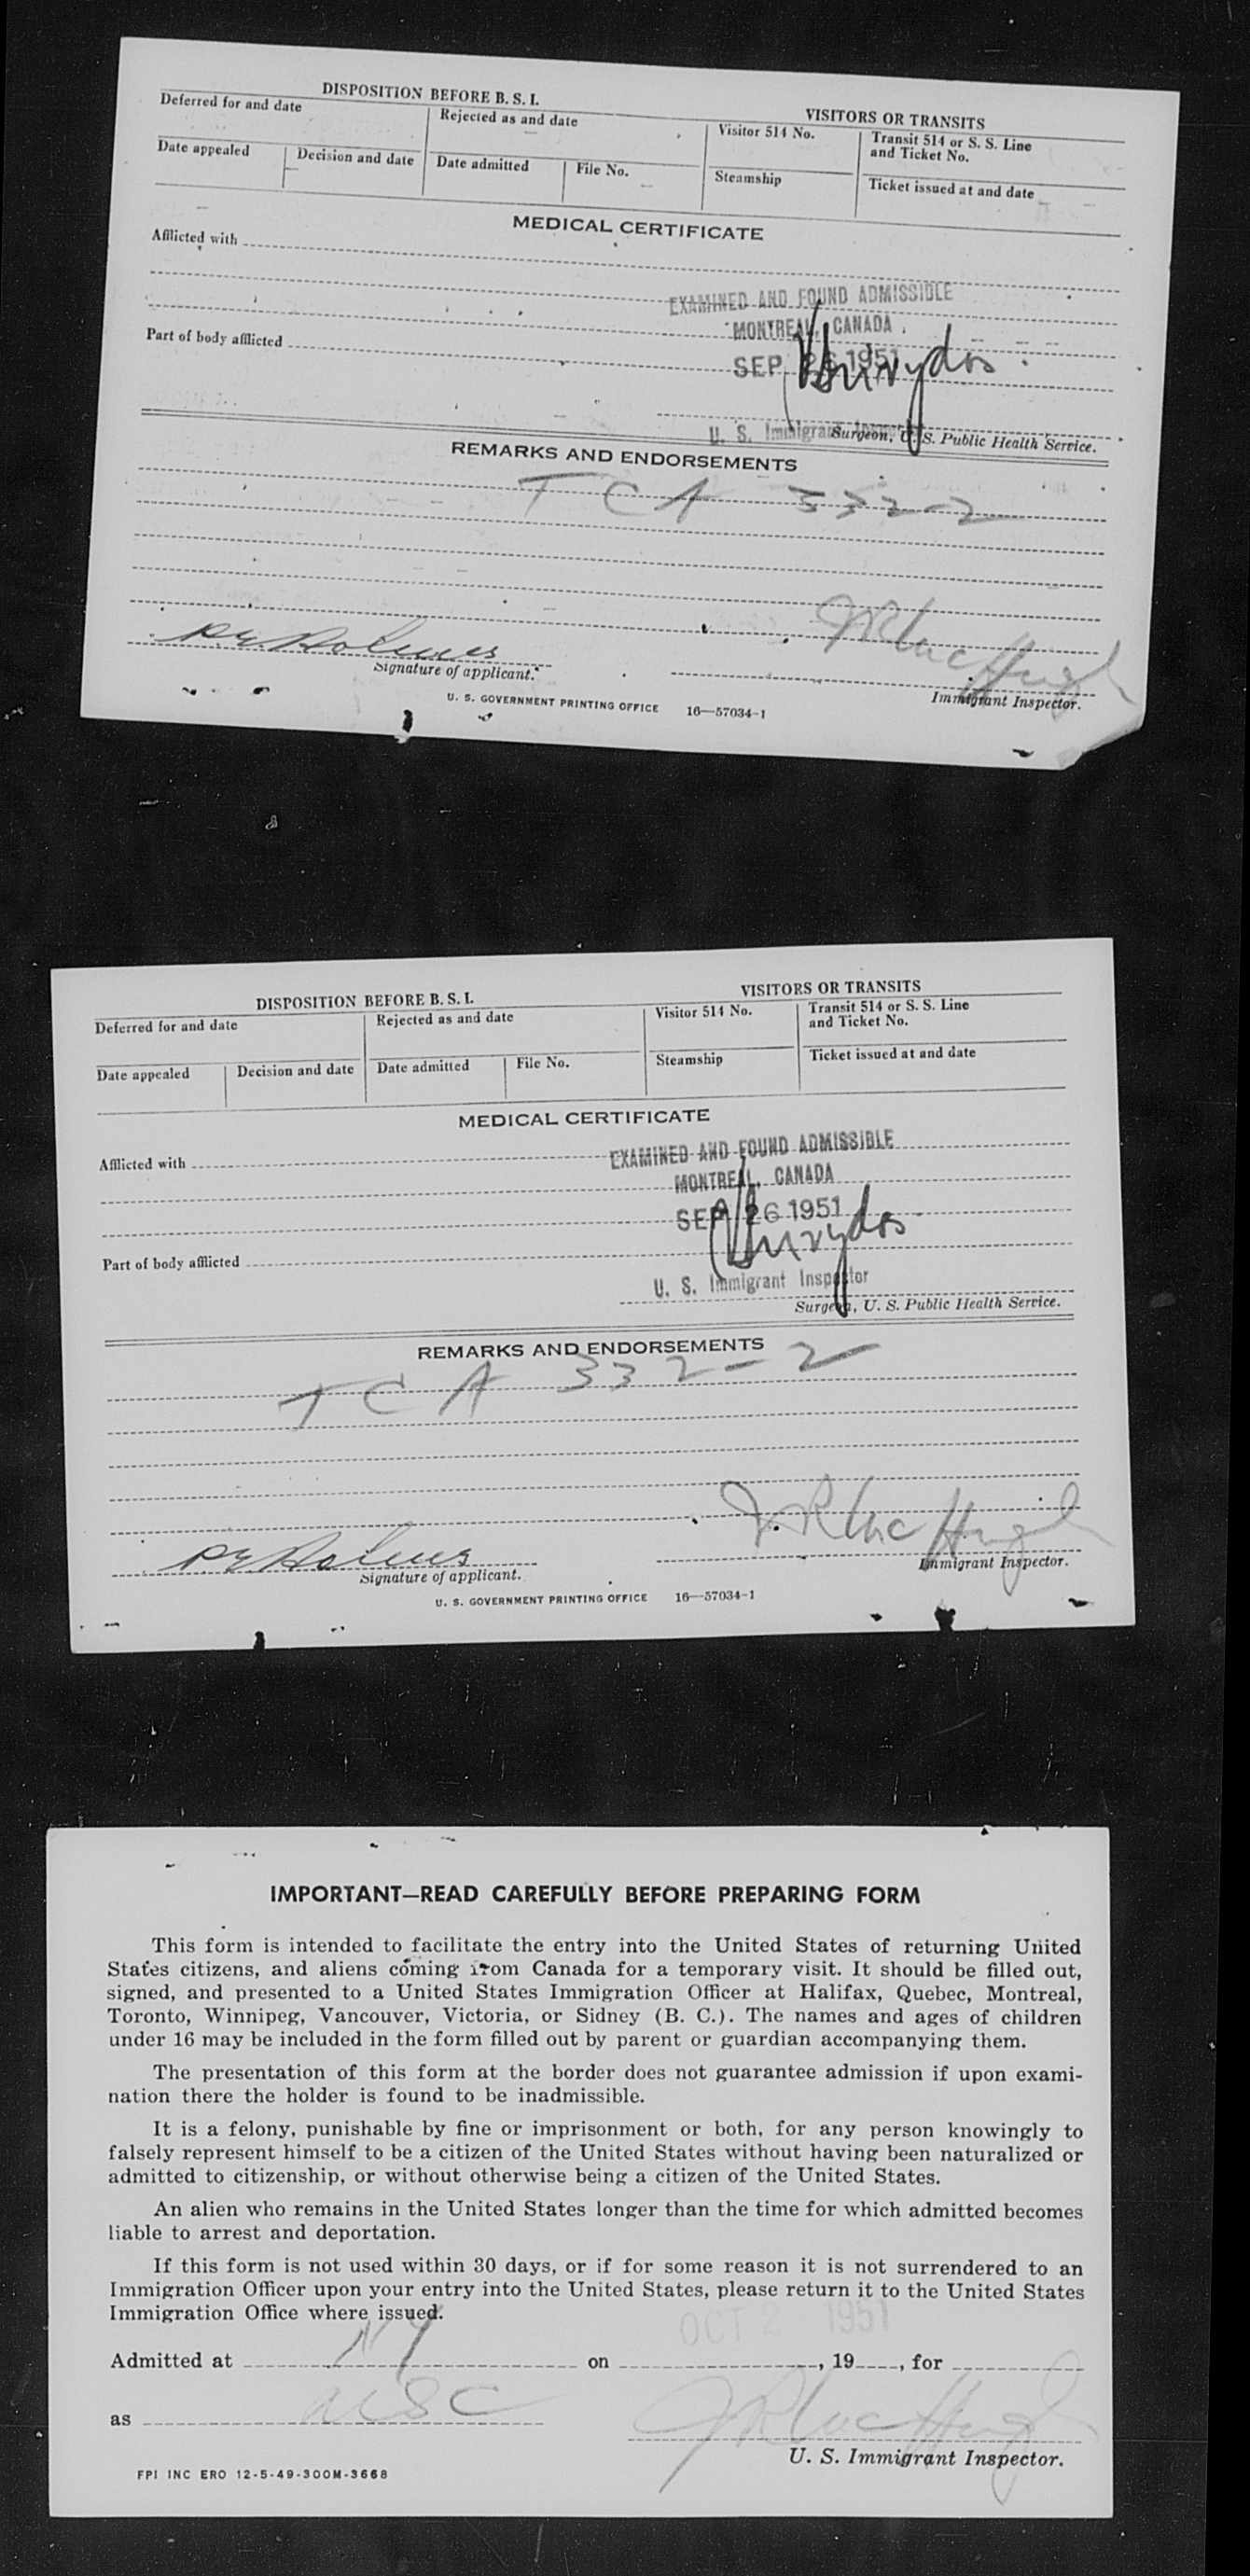 DISPOSITION BEFORE B. S. I.
VISITORS OR TRANSITS
Deferred for and date
Rejected as and date
Visitor 514 No.
Transit 514 or S. S. Line
and Ticket No.
Date appealed
Decision and date
Date admitted
File No.
Steamship
Ticket issued at and date
MEDICAL CERTIFICATE
Afflicted with
EXAMINED AND FOUND ADMISSIBLE
MONTREAL, CANADA
Part of body afflicted
SEP 26 1951
U. S. Immigrant Inspector
Surgeon, U. S. Public Health Service.
REMARKS AND ENDORSEMENTS
TCA 332-2
Holmes
Signature of applicant.
J R MacHugh
Immigrant Inspector.
U. S. GOVERNMENT PRINTING OFFICE 16—57034-1
DISPOSITION BEFORE B. S. I.
VISITORS OR TRANSITS
Deferred for and date
Rejected as and date
Visitor 514 No.
Transit 514 or S. S. Line
and Ticket No.
Date appealed
Decision and date
Date admitted
File No.
Steamship
Ticket issued at and date
MEDICAL CERTIFICATE
Afflicted with
EXAMINED AND FOUND ADMISSIBLE
MONTREAL, CANADA
SEP 26 1951
Part of body afflicted
U. S. Immigrant Inspector
Surgeon, U. S. Public Health Service.
REMARKS AND ENDORSEMENTS
TCA 332-2
Holmes
Signature of applicant.
J R MacHugh
Immigrant Inspector.
U. S. GOVERNMENT PRINTING OFFICE 16—57034-1
IMPORTANT—READ CAREFULLY BEFORE PREPARING FORM
This form is intended to facilitate the entry into the United States of returning United
States citizens, and aliens coming from Canada for a temporary visit. It should be filled out,
signed, and presented to a United States Immigration Officer at Halifax, Quebec, Montreal,
Toronto, Winnipeg, Vancouver, Victoria, or Sidney (B. C.). The names and ages of children
under 16 may be included in the form filled out by parent or guardian accompanying them.
The presentation of this form at the border does not guarantee admission if upon exami-
nation there the holder is found to be inadmissible.
It is a felony, punishable by fine or imprisonment or both, for any person knowingly to
falsely represent himself to be a citizen of the United States without having been naturalized or
admitted to citizenship, or without otherwise being a citizen of the United States.
An alien who remains in the United States longer than the time for which admitted becomes
liable to arrest and deportation.
If this form is not used within 30 days, or if for some reason it is not surrendered to an
Immigration Officer upon your entry into the United States, please return it to the United States
Immigration Office where issued.
OCT 2 1951
Admitted at NY on , 19 , for
as USC
J R MacHugh
U. S. Immigrant Inspector.
FPI INC ERO 12-5-49-300M-3668